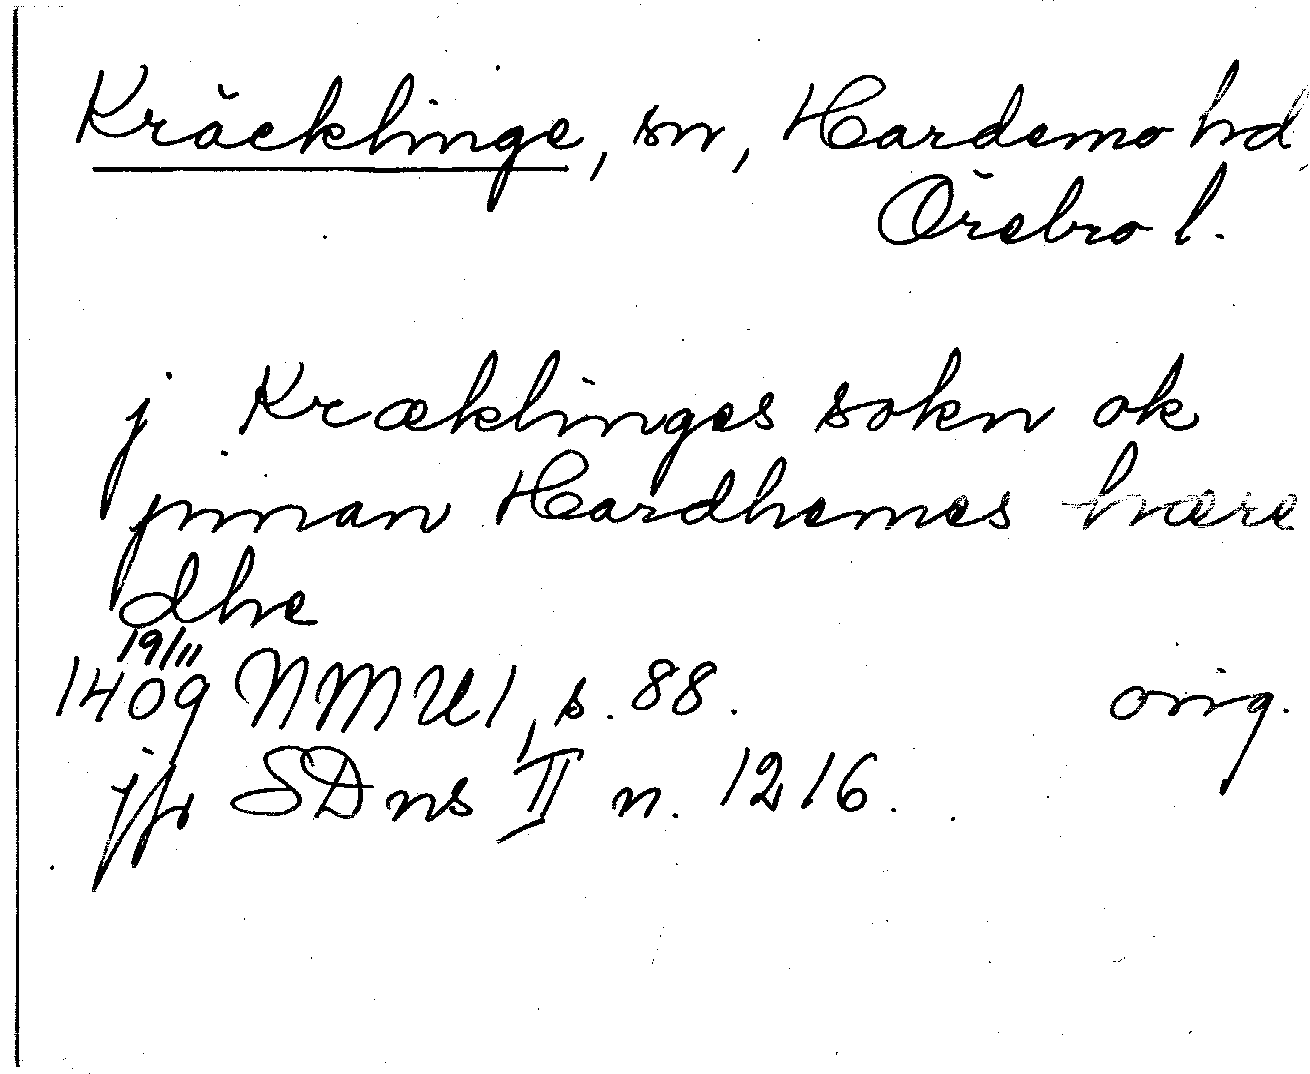 Kräcklinge, sn, Hardemo hd,
Örebro l.
j Kræklinges sokn ok
jnnan Hardhemes hære
dhe
19/11
1409 NMU1, s. 88. orig.
jfr SDns II n. 1216.